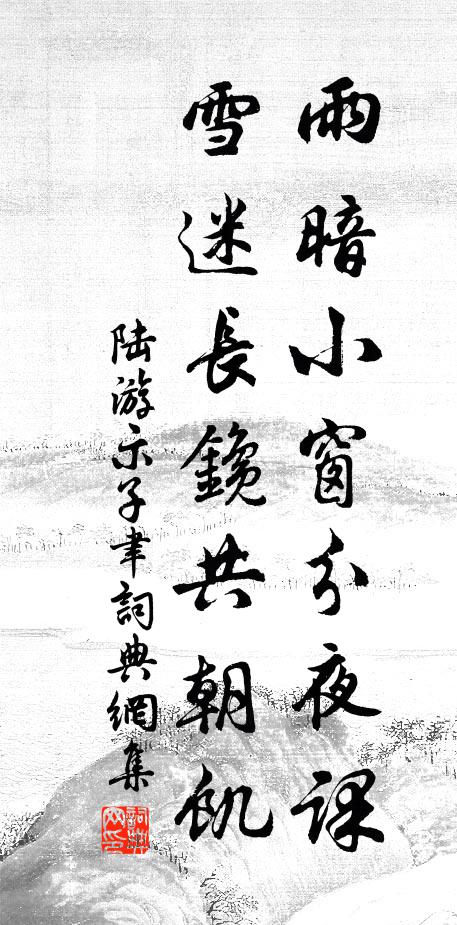 雨暗小窗分夜课
雪迷長鑱共朝飢
陆游示子聿詞典網集